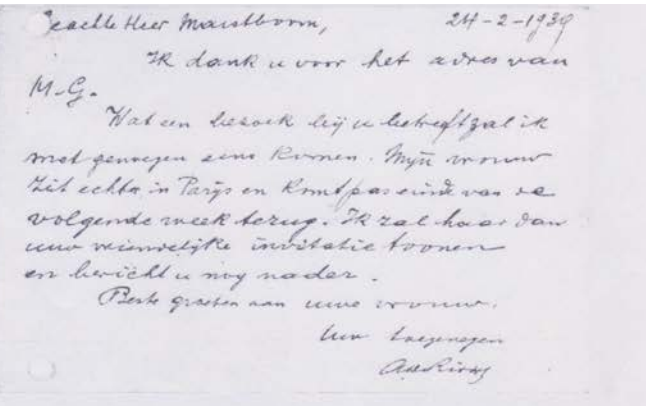 Geachte Heer Maustborm, 24-2-1939
Ik dank u voor het adres van
M.G.
Wat een bezoek bij u betreft zal ik
met genoegen eens komen. Mijn vrouw
zit echter in Parijs en komt pas einde van de
volgende week terug. Ik zal haar dan
uwe vriendelijke invitatie toonen
en bericht u nog nader.
Beste groeten aan uwe vrouw.
Uw toegenegen